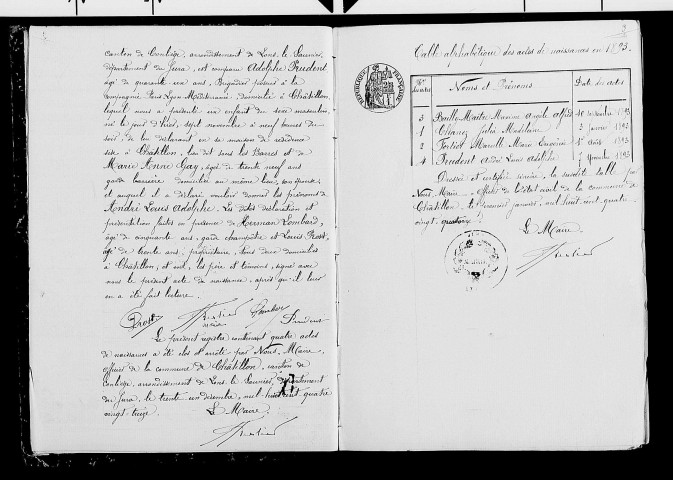 canton de Conliège, arrondissement de Lons le Saunier,
département du Jura, est comparu Adolphe Prudent,
âgé de quarante un ans, Brigadier poseur à la
compagnie Paris Lyon Méditerranée, domicilié à Châtillon,
lequel nous a présenté un enfant du sexe masculin,
né le jour d'hier, sept novembre à neuf heures du
soir, de lui déclarant en sa maison de résidence
sise à Châtillon, lieu dit sous les Barres et de
Marie Anne Gay, âgée de trente neuf ans
garde barrière domiciliée au même lieu, son épouse,
et auquel il a déclaré vouloir donner les prénoms de
André Louis Adolphe. Les dites déclaration et
présentation faites en présence de Herman Lombard,
âgé de cinquante ans, garde champêtre et Louis Prost,
âgé de trente ans, propriétaire, tous deux domiciliés
à Châtillon, et ont, les père et témoins, signé avec
nous le présent acte de naissance, après qu'il leur
en a été fait lecture.
Prost Prudent
Le présent registre contenant quatre actes
de naissances a été clos et arrêté par Nous, Maire,
officier de la commune de Châtillon, canton de
Conliège, arrondissement de Lons le Saunier, département
du Jura, le trente un décembre, mil huit cent quatre
vingt treize. Le Maire,
3
Table alphabétique des actes de naissances en 1893.
REPUBLIQUE FRANÇAISE
Nos Noms et Prénoms Date des actes
3 Maxime Angèle Alfred 10 1893
1 Julia Madelaine 3 janvier 1893
2 Marie Eugénie 1er Août 1893
4 Prudent André Louis Adolphe 7 Novembre 1893
Dressée et certifiée sincère, la susdite table par
Nous Maire officier de l'état civil de la commune de
Châtillon, le premier janvier, mil huit cent quatre
vingt quatorze.
Le Maire,
MAIRIE